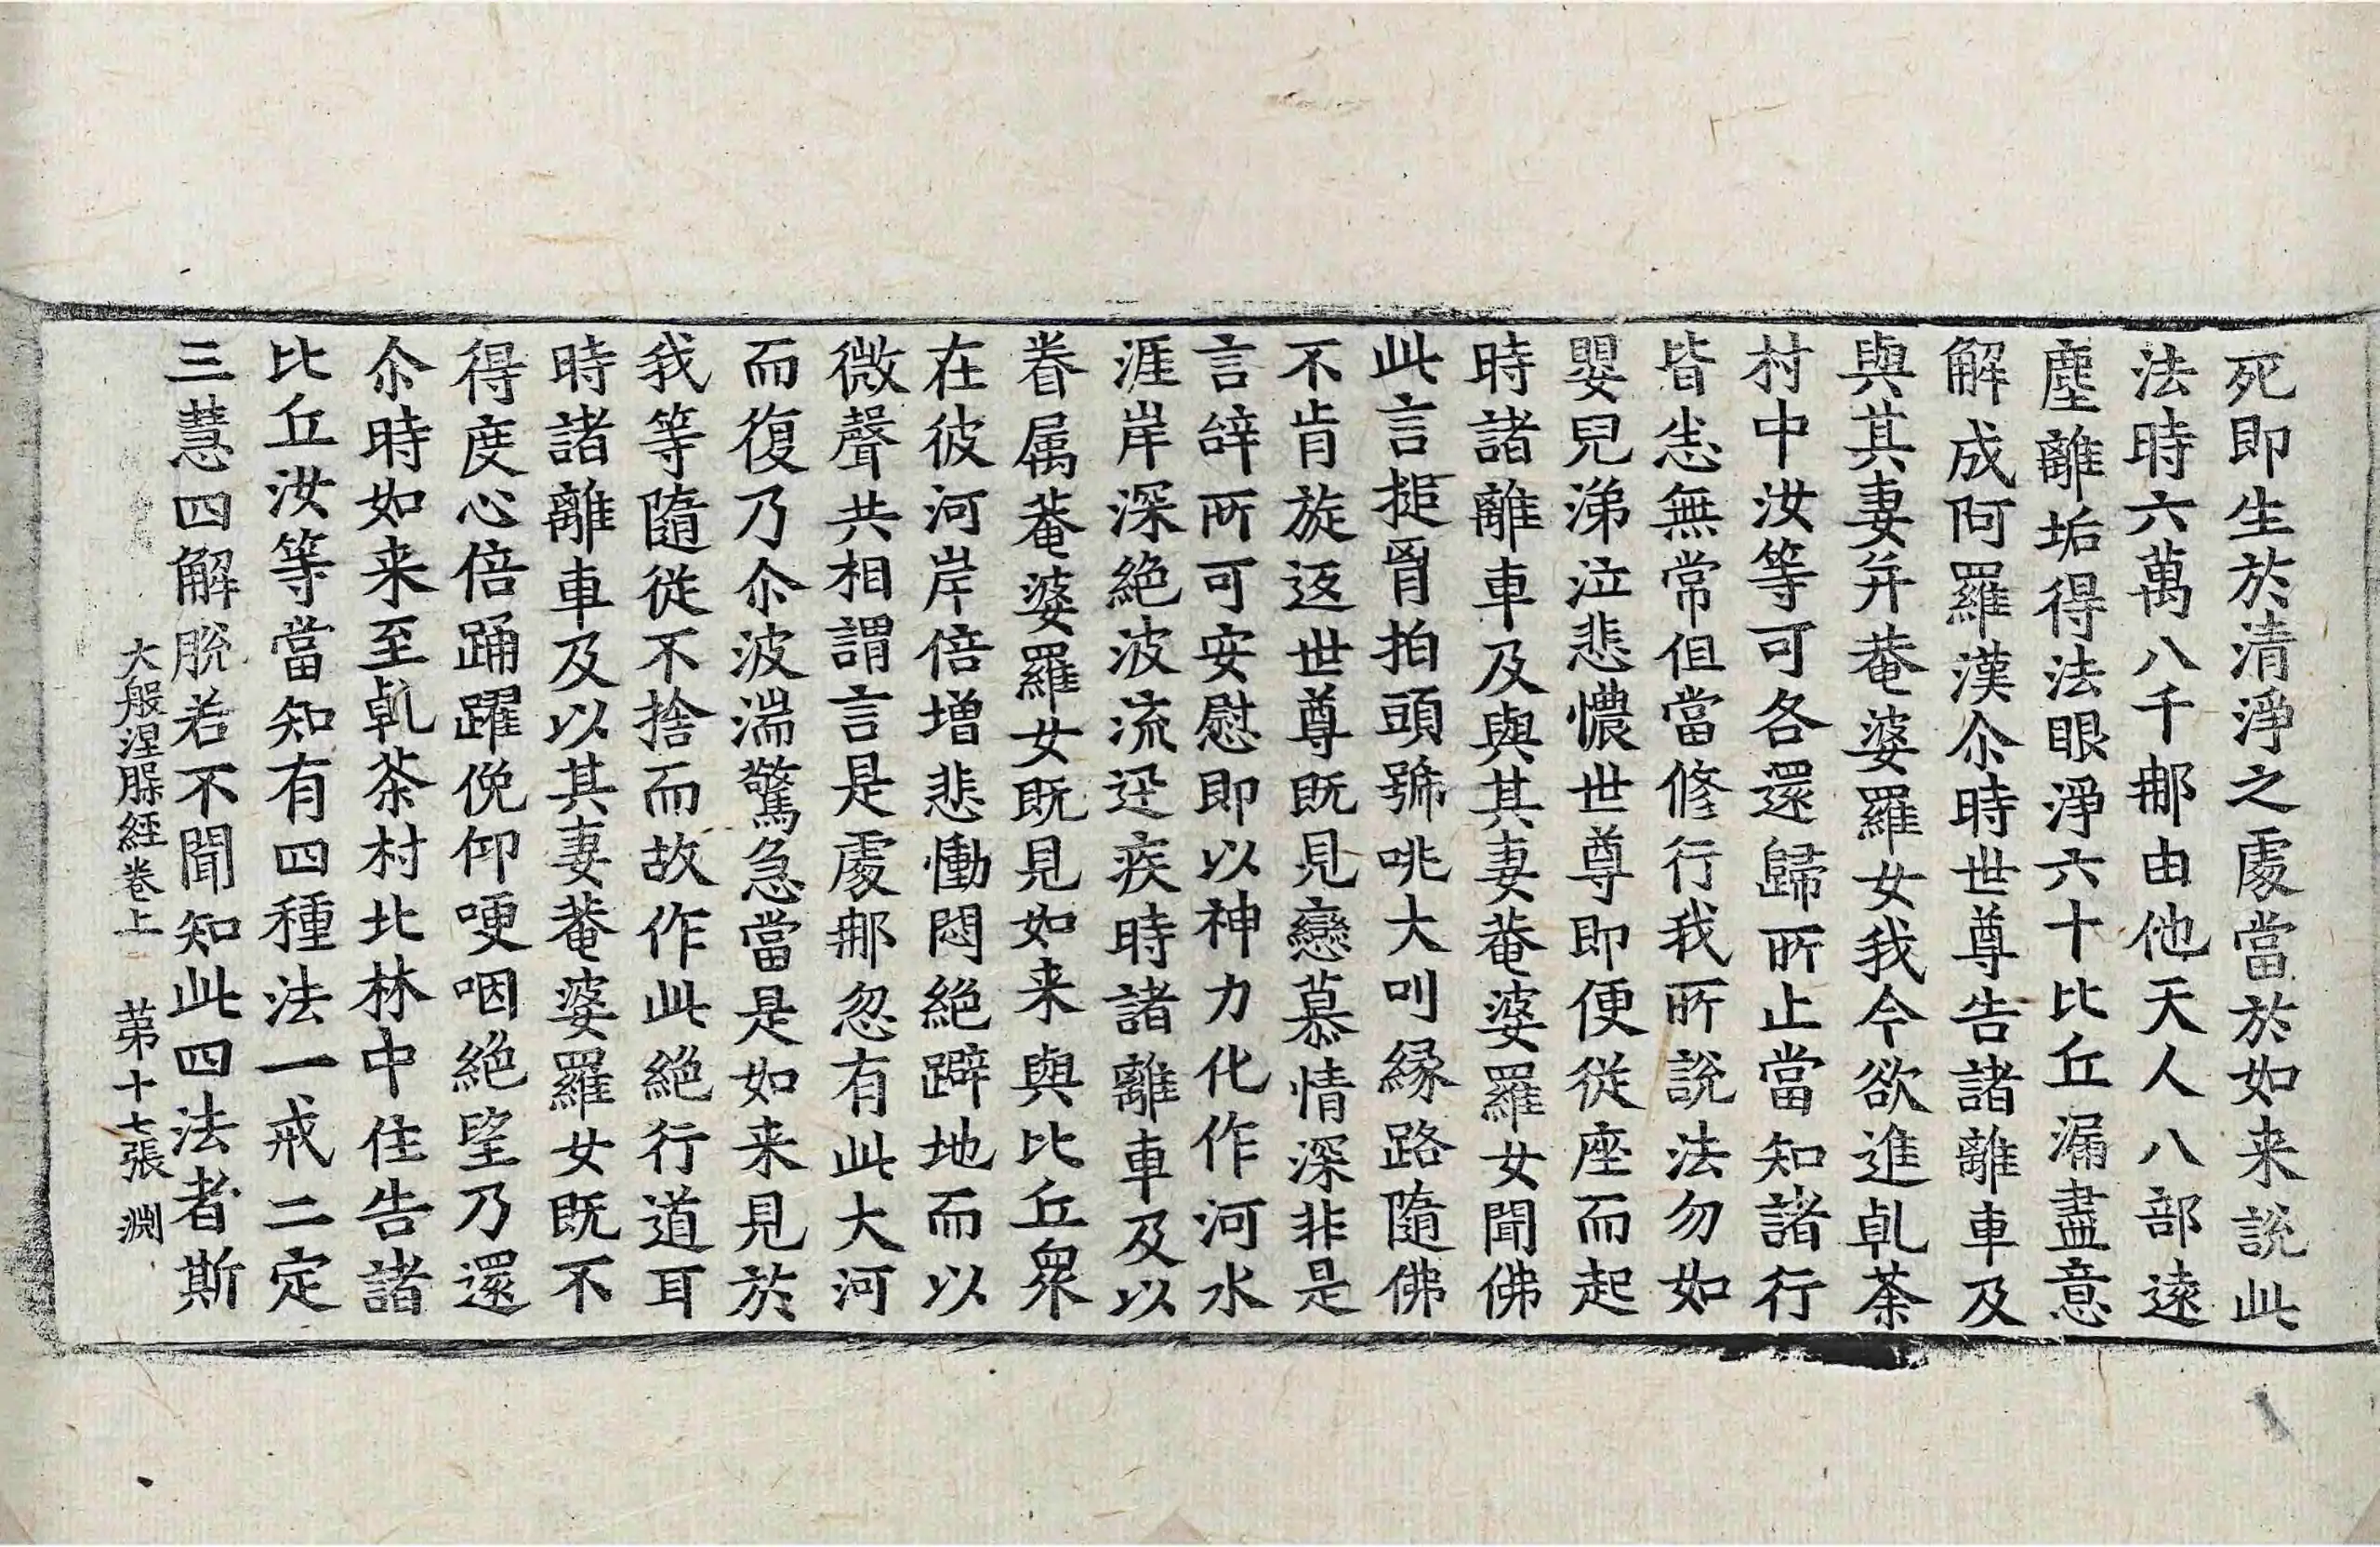 死即生於清淨之處當於如来説此
法時六萬八千那由他天人八部遠
塵離垢得法眼淨六十比丘漏盡意
解成阿羅漢尒時世尊告諸離車及
與其妻并菴婆羅女我今欲進乹荼
村中汝等可各還歸所止當知諸行
皆悉無常但當修行我所說法勿如
嬰兒涕泣悲憹世尊即便從座而起
時諸離車及與其妻菴婆羅女聞佛
此言搥胷拍頭號咷大叫縁路隨佛
不肯旋返世尊既見戀慕情深非是
言辝所可安慰即以神力化作河水
涯岸深絶波流迅疾時諸離車及以
眷属菴婆羅女既見如来與比丘衆
在彼河岸倍增悲慟悶絶躃地而以
微聲共相謂言是處那忽有此大河
而復乃尒波湍驚急當是如来見於
我等隨從不捨而故作此絶行道耳
時諸離車及以其妻菴婆羅女既不
得度心倍踊躍俛仰哽咽絶望乃還
尒時如来至乹荼村北林中住告諸
比丘汝等當知有四種法一戒二定
三慧四解脫若不聞知此四法者斯
大般涅槃經卷上 第十七張 淵